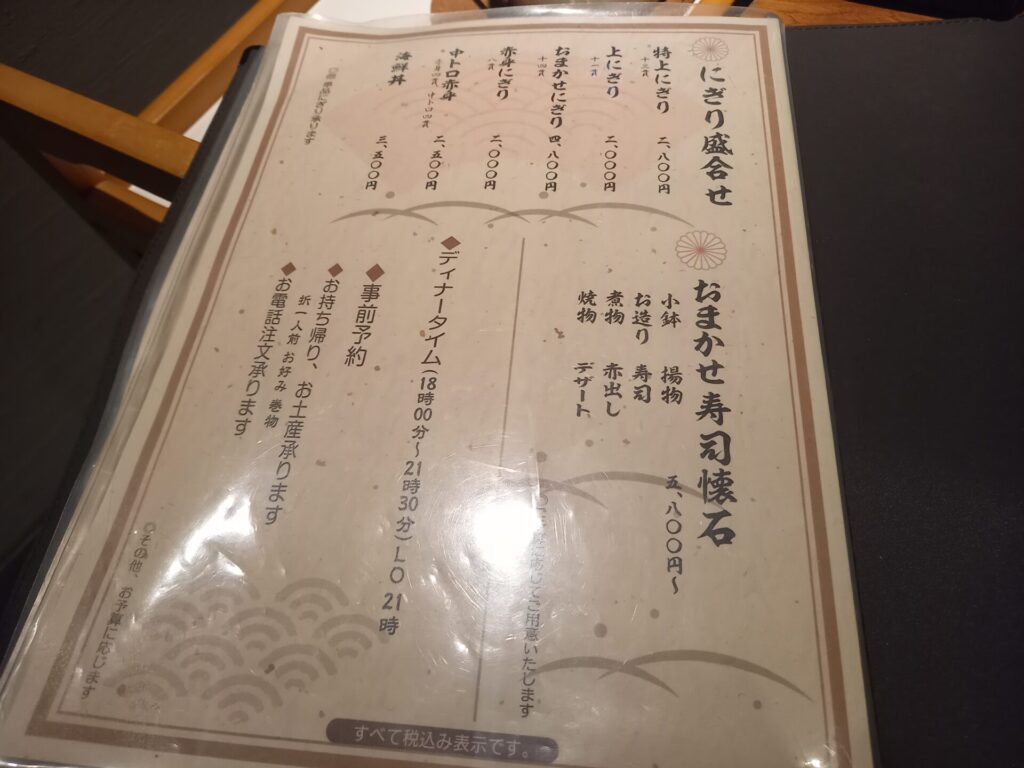 にぎり盛合せ
特上にぎり 二、八〇〇円
上にぎり 二、〇〇〇円
十一貫
おまかせにぎり 四、八〇〇円
十四貫
赤身にぎり 二、〇〇〇円
八貫
中トロ赤身 二、五〇〇円
赤身四貫 中トロ四貫
海鮮丼 三、五〇〇円
単品にぎり承ります
おまかせ寿司懐石
五、八〇〇円～
小鉢 揚物
お造り 寿司
煮物 赤出し
焼物 デザート
応じてご用意いたします
◆ディナータイム(18時00分～21時30分)LO 21時
◆事前予約
◆お持ち帰り、お土産承ります
折一人前 お好み 巻物
◆お電話注文承ります
◎その他、お予算に応じます
すべて税込み表示です。